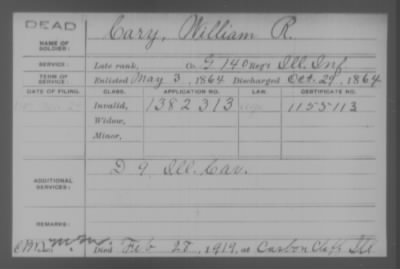 DEAD
NAME OF SOLDIER: Cary, William R.
SERVICE: Late rank, Co. G 140 Reg't Ill. Inf.
TERM OF SERVICE: Enlisted May 3, 1864 Discharged Oct. 29, 1864
DATE OF FILING. CLASS. APPLICATION NO. LAW. CERTIFICATE NO.
Invalid, 1382313 1155113
Widow,
Minor,
ADDITIONAL SERVICES: D 9 Ill. Cav.
REMARKS:
Died Feb 27, 1919, at Carbon Cliff Ill